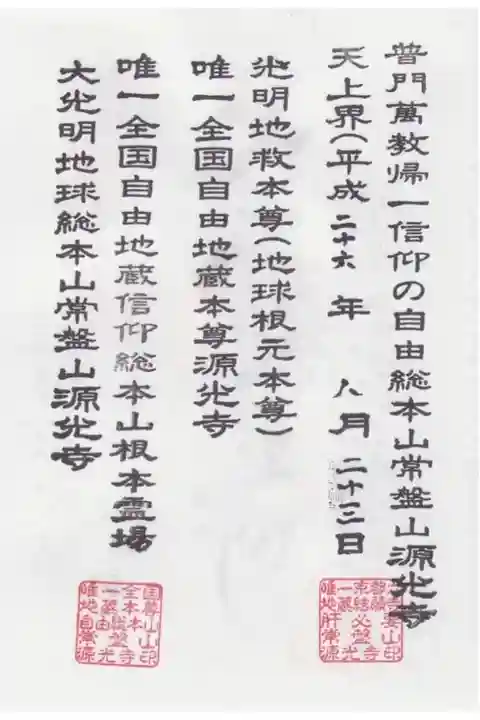 普門萬教帰一信仰の自由総本山常盤山源光寺
天上界(平成二十六年 八月二十三日
光明地救本尊(地球根元本尊)
唯一全国自由地蔵本尊源光寺
唯一全国自由地蔵信仰総本山根本霊場
大光明地球総本山常盤山源光寺